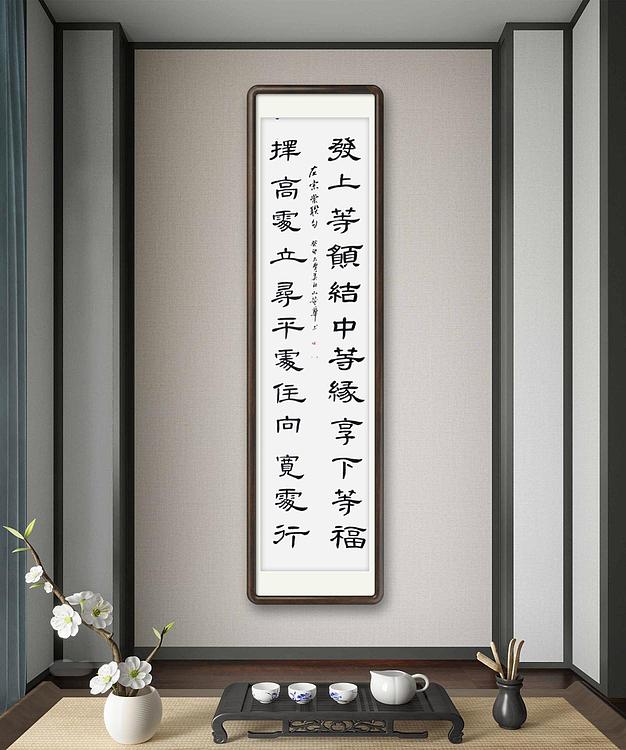 發上等願結中等緣享下等福
左宗棠聯句 癸卯
擇高處立尋平處住向寬處行